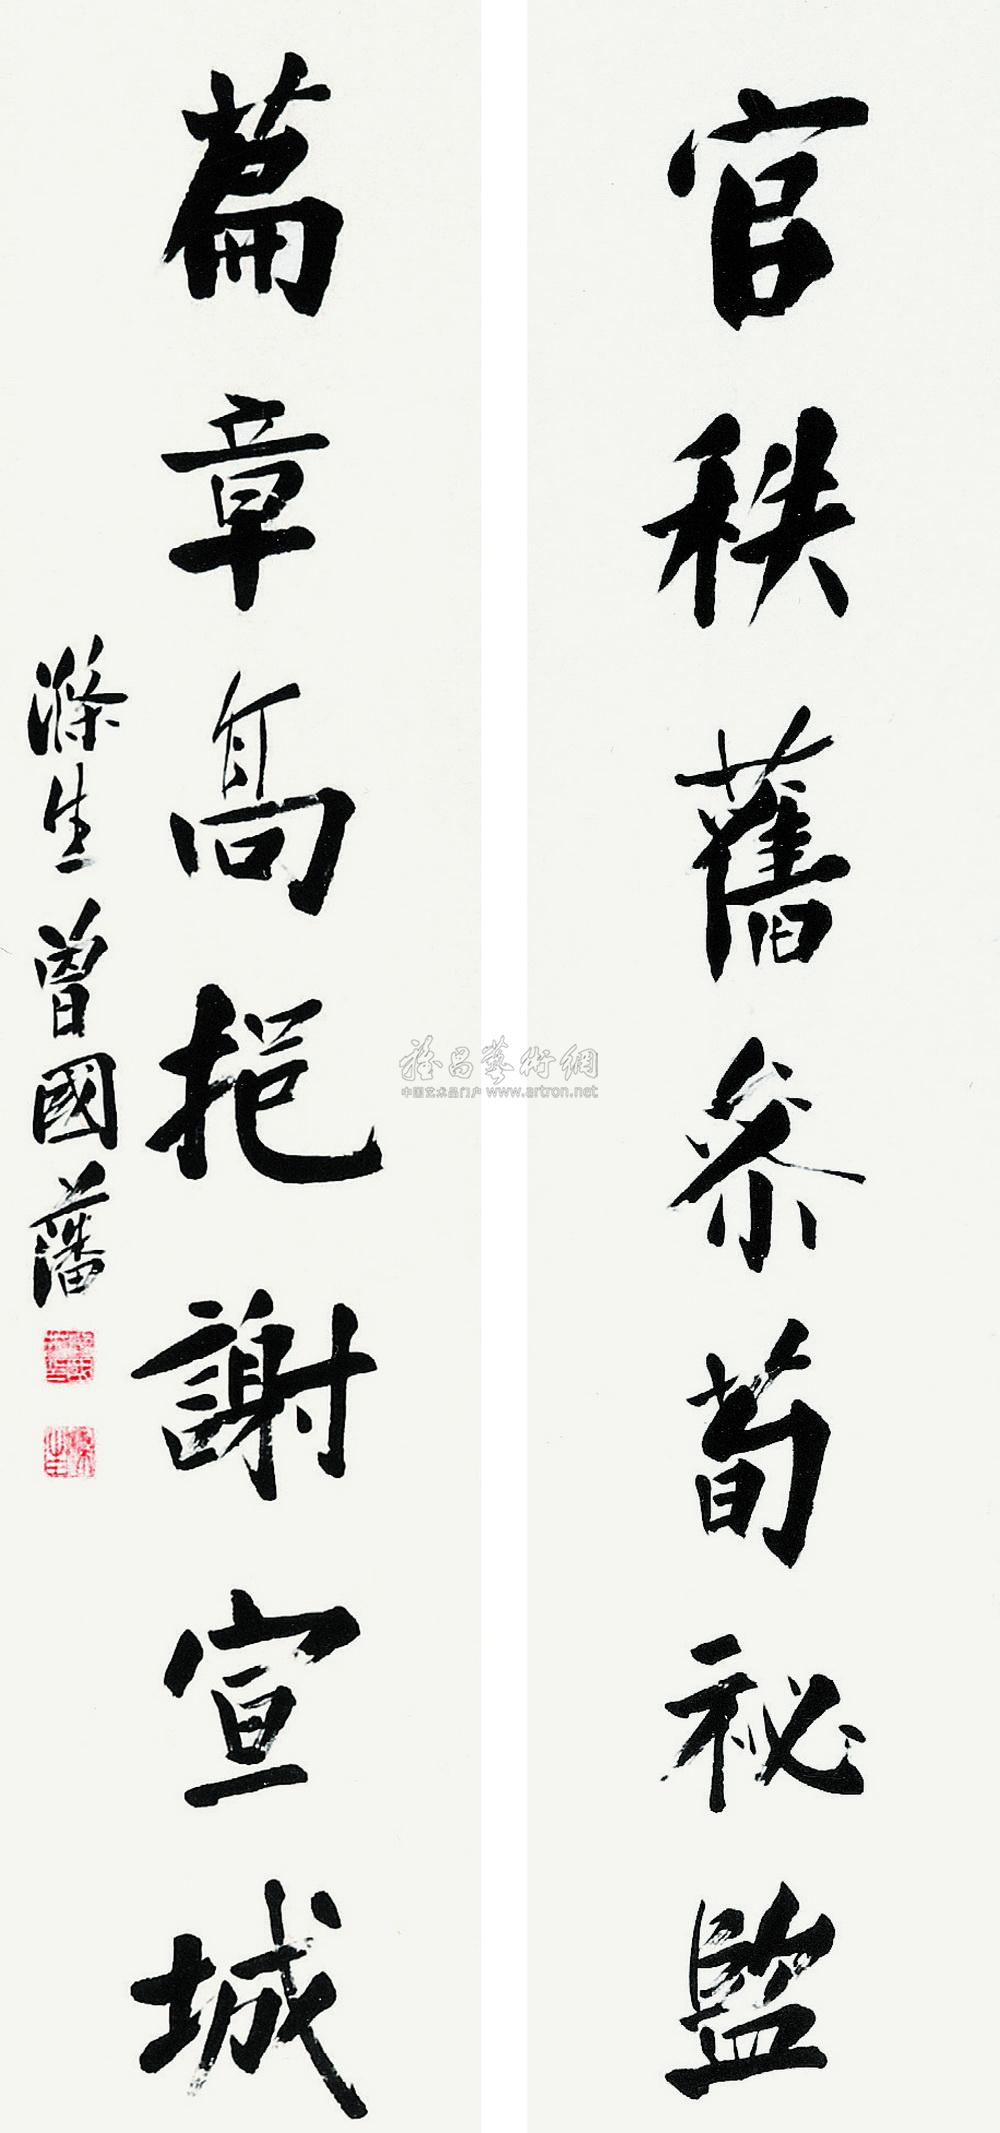 官秩舊參荀祕監
篇章高挹謝宣城
滌生曾國藩
雅昌藝術網
中国艺术品门户 www.artron.net